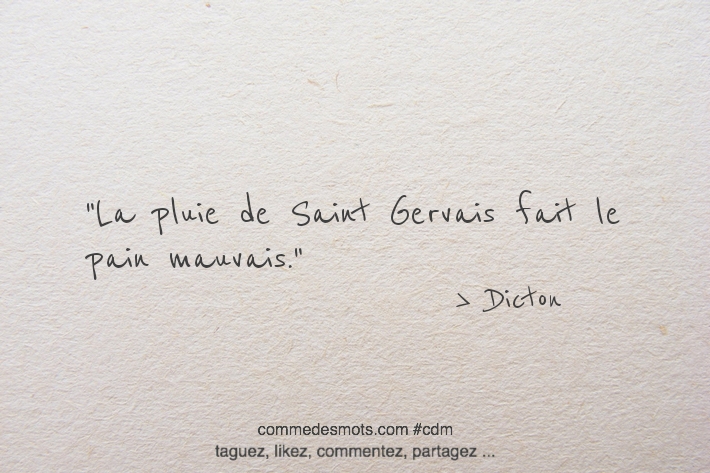 "La pluie de Saint Gervais fait le
pain mauvais."
> Dicton
commedesmots.com #cdm
taguez, likez, commentez, partagez ...